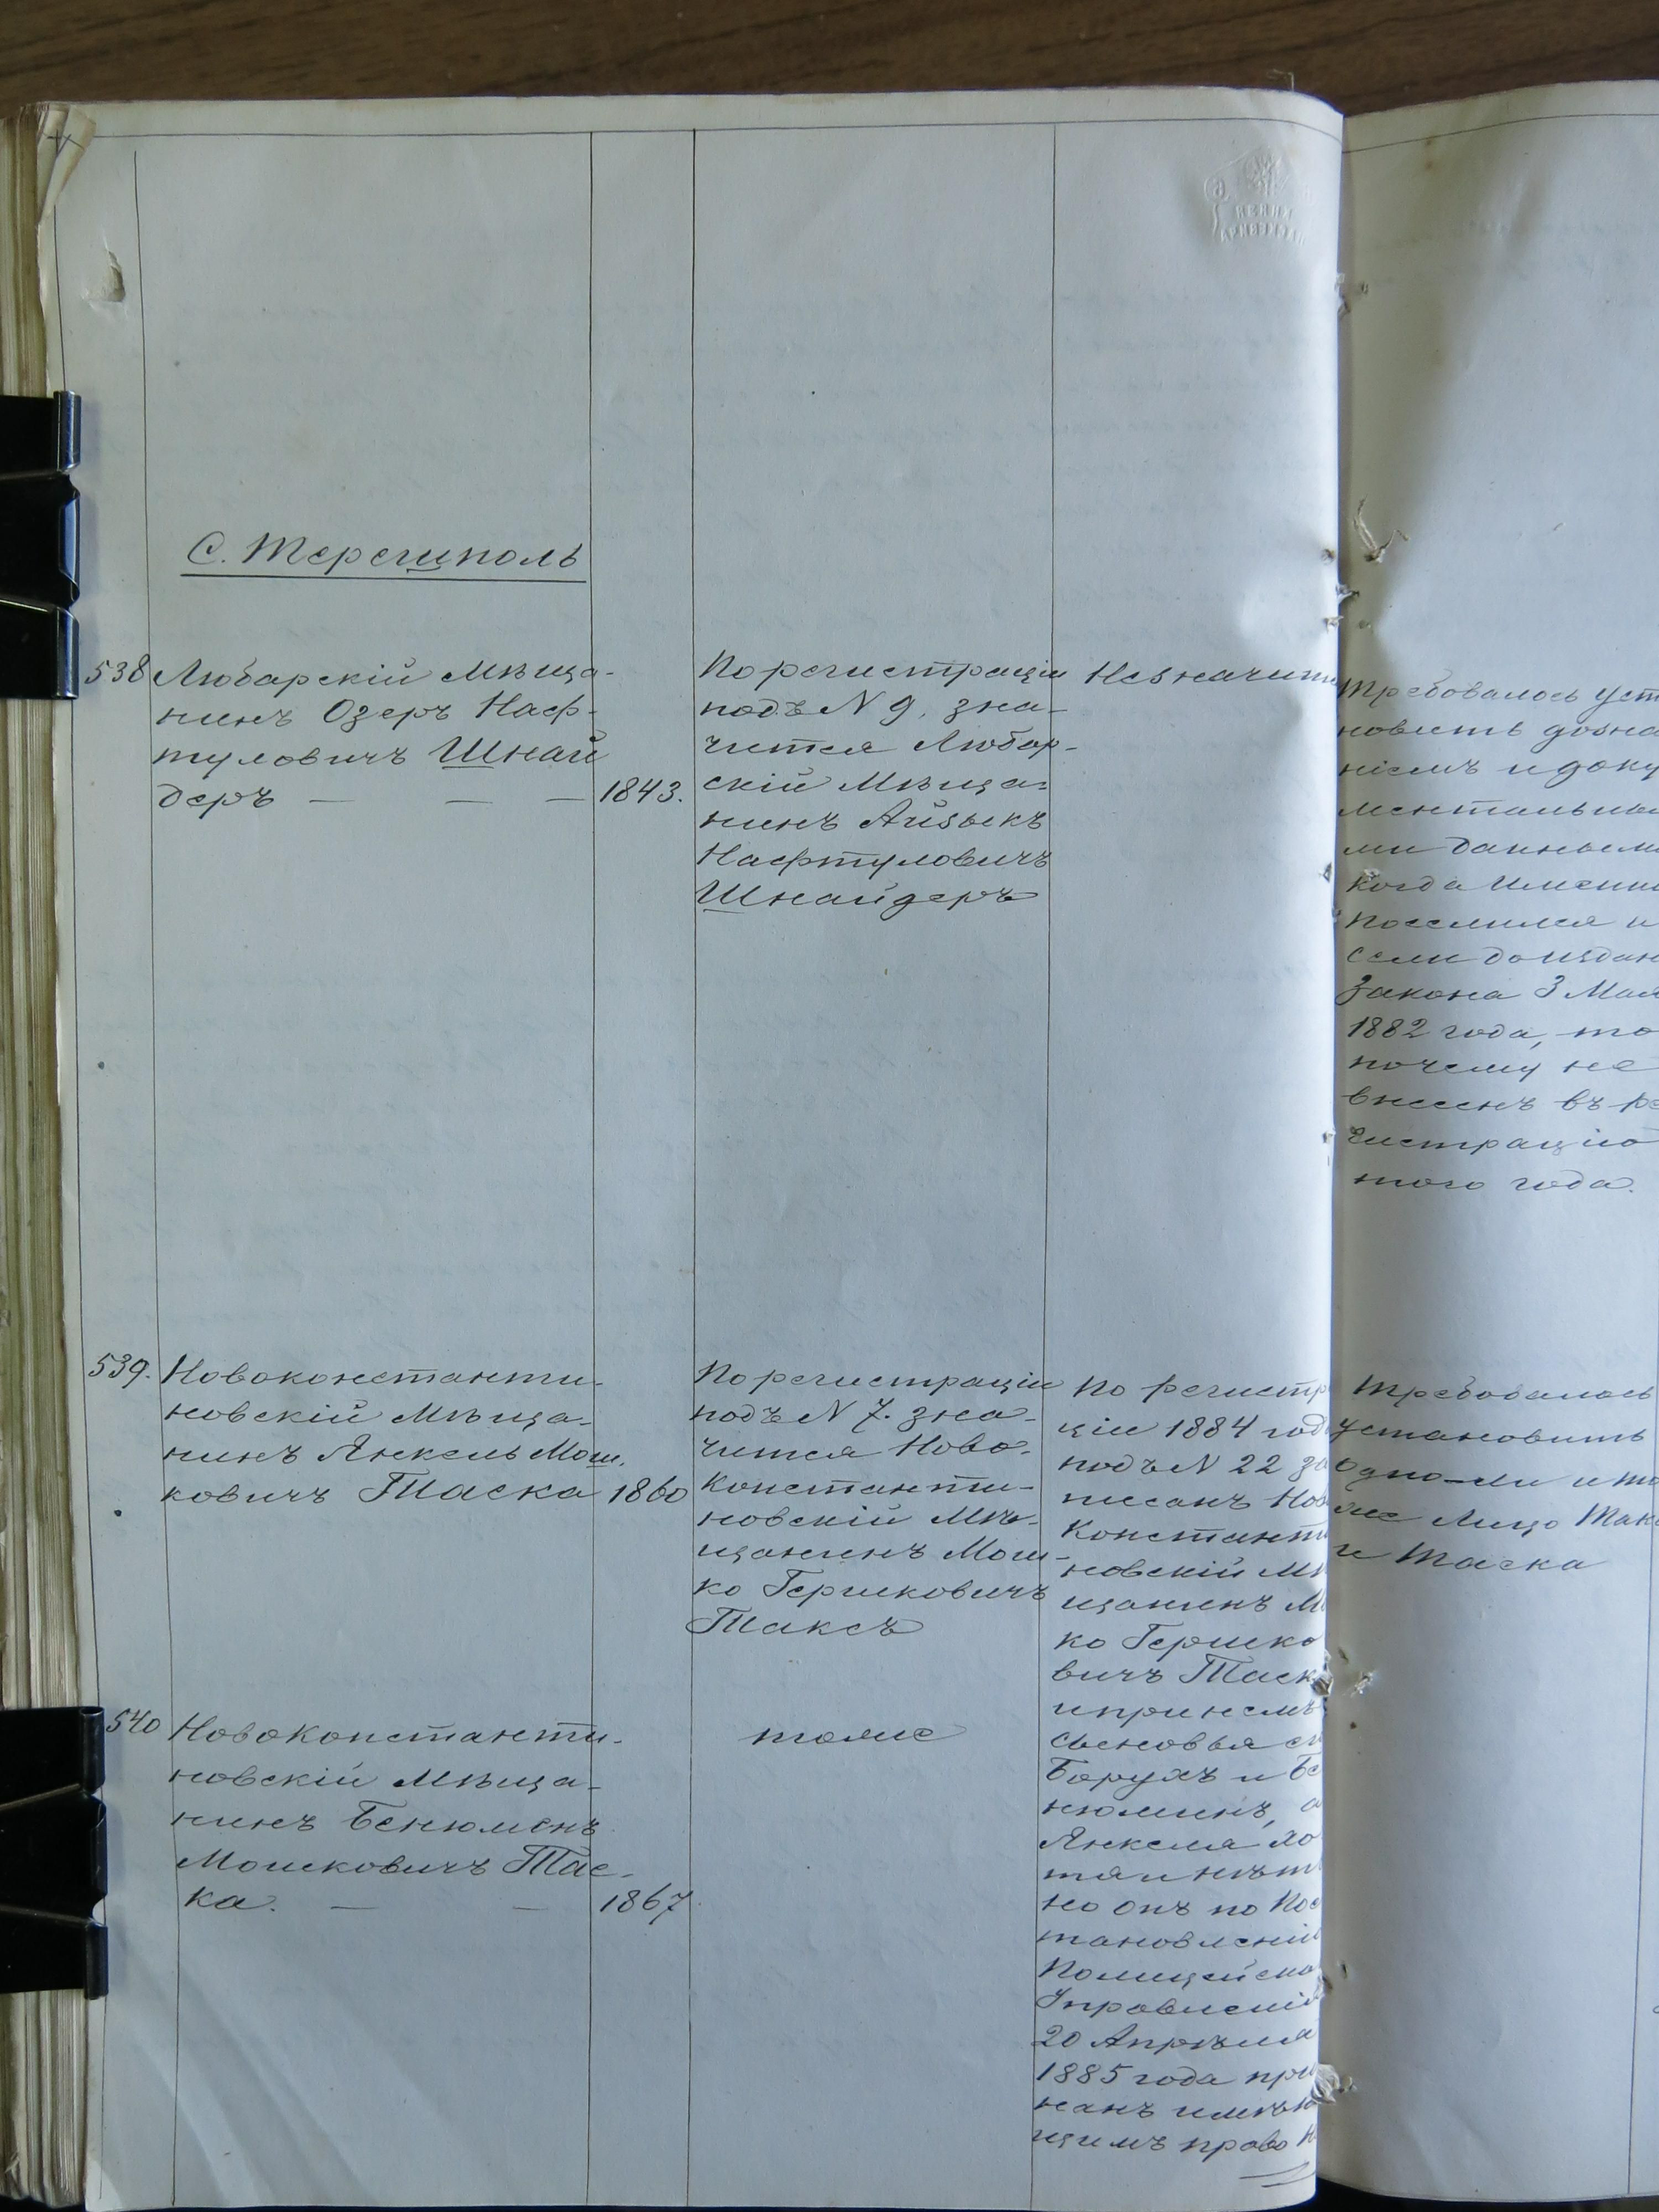 С. Терешполь
538 Любарскій Мѣща-
нинъ Озеръ Наф-
туловичъ Шнай
деръ — — — 1843.
По регистраціи
подъ N 9, зна-
чится Любар-
скій Мѣща-
нинъ Айзыкъ
Нафтуловичъ
Шнайдеръ
Незначит
Требовалось уст
новить дозна
ніемъ и доку
ментальны
ми данным
когда именн
поселился и
если до издан
Закона 3 Мая
1882 года, то
почему не
внесенъ въ ре
гистрацію
того года.
539. Новоконстанти-
новскій Мѣща-
нинъ Янкель Мош.
ковичъ Таска 1860
По регистраціи
подъ N 7. зна-
чится Ново-
константи-
новскій Мѣ-
щанинъ Мош-
ко Гершковичъ
Таксъ
По регистр
ціи 1884 год
подъ N 22 за
писанъ Нов
Константи
новскій Мѣ
щанинъ М
ко Гершко
вичъ Таск
и при немъ
сыновья е
Борухъ и Бе
нюминъ, а
Янкеля хо
тя и нѣт
но онъ по Пос
тановленію
Полицейско
Управленія
20 Апрѣля
1885 года при
нанъ имѣю
щимъ право н
Требовалось
установить
Одно-ли и то
же лицо Такс
и Таска
540 Новоконстанти-
новскій Мѣща-
нинъ Бенюменъ
Мошковичъ Тас-
ка. — — 1867.
тоже